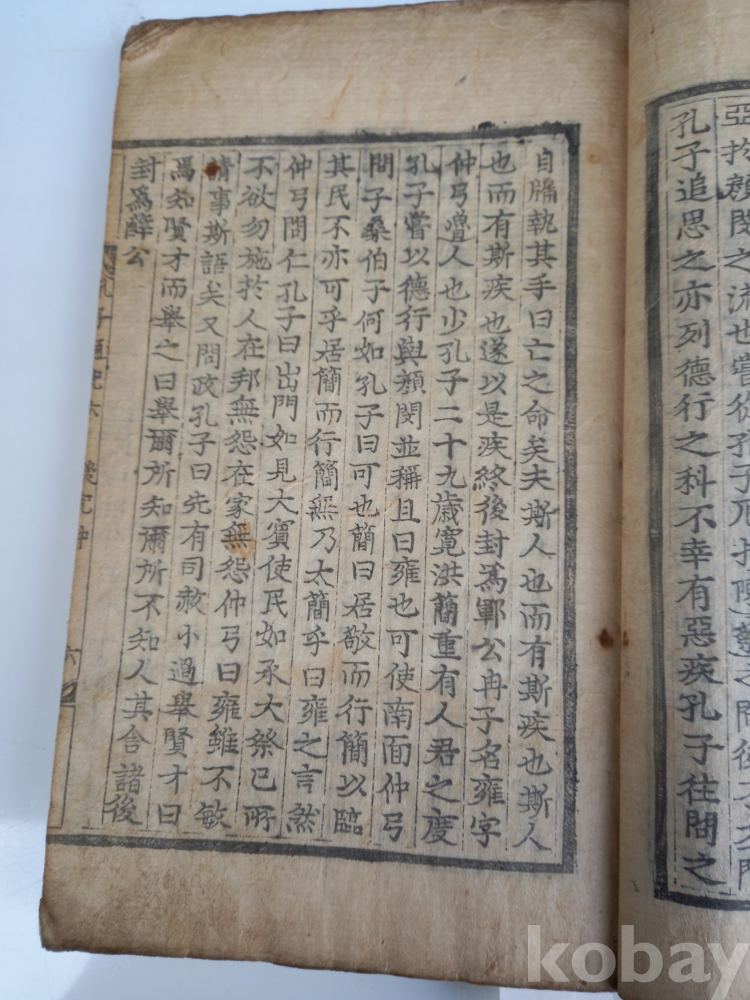 顔閔之流也嘗從孔子
孔子追思之亦列德行之科不幸有惡疾孔子往問之
自牖執其手曰亡之命矣夫斯人也而有斯疾也斯人
也而有斯疾也遂以是疾終後封爲鄆公冉子名雍字
仲弓魯人也少孔子二十九歲寬洪簡重有人君之度
孔子嘗以德行與顔閔並稱且曰雍也可使南面仲弓
問子桑伯子何如孔子曰可也簡曰居敬而行簡以臨
其民不亦可乎居簡而行簡無乃太簡乎曰雍之言然
仲弓問仁孔子曰出門如見大賓使民如承大祭已所
不欲勿施於人在邦無怨在家無怨仲弓曰雍雖不敏
請事斯語矣又問政孔子曰先有司赦小過舉賢才曰
焉知賢才而舉之曰舉爾所知爾所不知人其舍諸後
封爲薛公
孔子通紀六
六
kobay